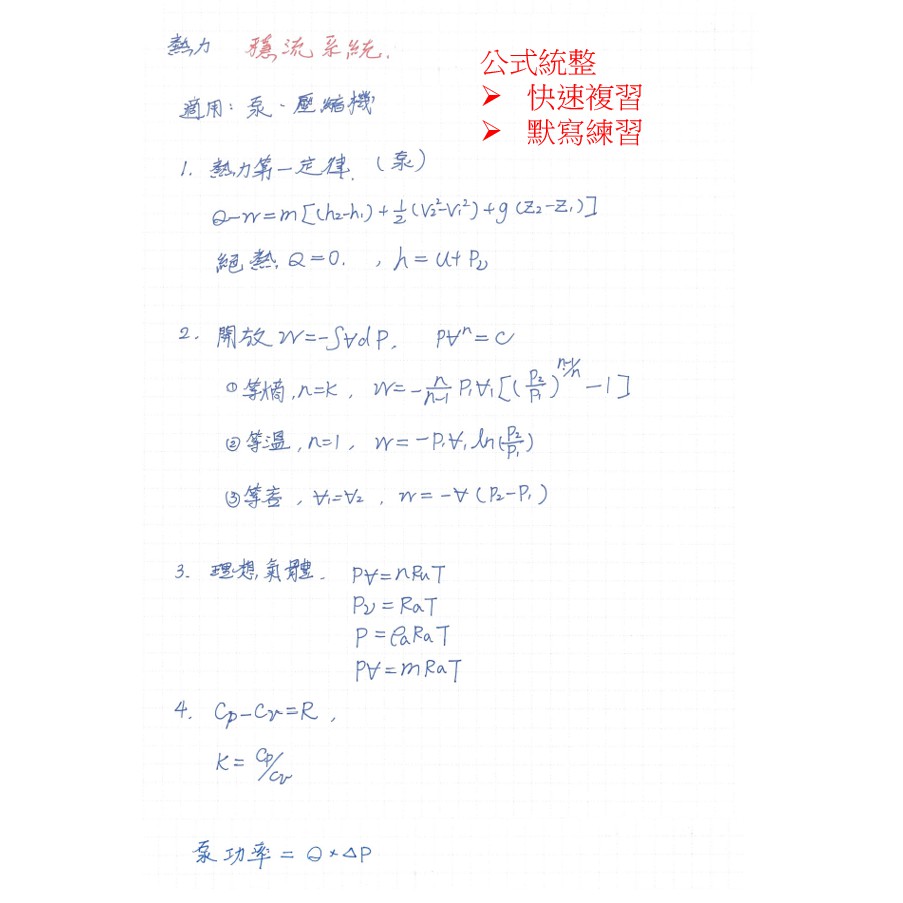 熱力 穩流系統.
公式統整
➢ 快速複習
➢ 默寫練習
適用: 泵、壓縮機
1. 熱力第一定律. (泵)
Q-W=m[(h2-h1)+½(V2²-V1²)+g(Z2-Z1)]
絕熱, Q=0. , h=u+Pv
2. 開放 W=-∫∀dP, P∀ⁿ=C
① 等熵, n=k, W=-n/(n-1) P1∀1[(P2/P1)^((n-1)/n) -1]
② 等溫, n=1, W=-P1∀1 ln(P2/P1)
③ 等容, ∀1=∀2, W=-∀(P2-P1)
3. 理想氣體. P∀=nRuT
Pv=RaT
P=ρaRaT
P∀=mRaT
4. Cp-Cv=R,
K=Cp/Cv
泵功率=Q×ΔP